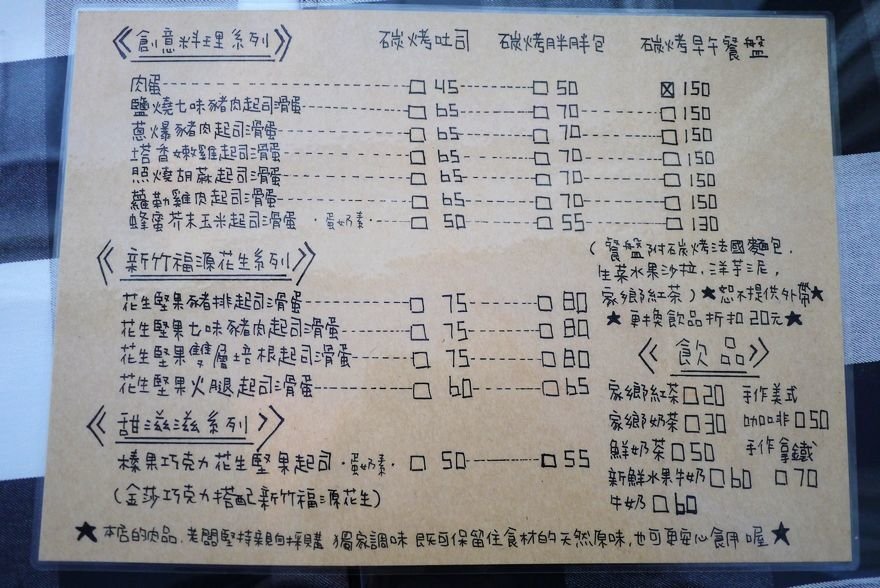 《創意料理系列》 碳烤吐司 碳烤胖胖包 碳烤早午餐盤
肉蛋 □ 45 □ 50 ☒ 150
鹽燒七味豬肉起司滑蛋 □ 65 □ 70 □ 150
蔥爆豬肉起司滑蛋 □ 65 □ 70 □ 150
塔香嫩雞起司滑蛋 □ 65 □ 70 □ 150
照燒胡麻起司滑蛋 □ 65 □ 70 □ 150
蘿勒雞肉起司滑蛋 □ 65 □ 70 □ 150
蜂蜜芥末玉米起司滑蛋 ·蛋奶素· □ 50 □ 55 □ 130
(餐盤附碳烤法國麵包.
生菜水果沙拉.洋芋泥,
家鄉紅茶)★恕不提供外帶★
★ 更換飲品折扣20元★
《新竹福源花生系列》
花生堅果豬排起司滑蛋 □ 75 □ 80
花生堅果七味豬肉起司滑蛋 □ 75 □ 80
花生堅果雙層培根起司滑蛋 □ 75 □ 80
花生堅果火腿起司滑蛋 □ 60 □ 65
《甜滋滋系列》
榛果巧克力花生堅果起司 ·蛋奶素· □ 50 □ 55
(金莎巧克力搭配新竹福源花生)
《飲品》
家鄉紅茶□20 手作美式
家鄉奶茶□30 咖啡□50
鮮奶茶□50 手作拿鐵
新鮮水果牛奶□60 □70
牛奶□60
★本店的肉品.老闆堅持親自採購 獨家調味 既可保留住食材的天然原味,也可更安心食用喔★